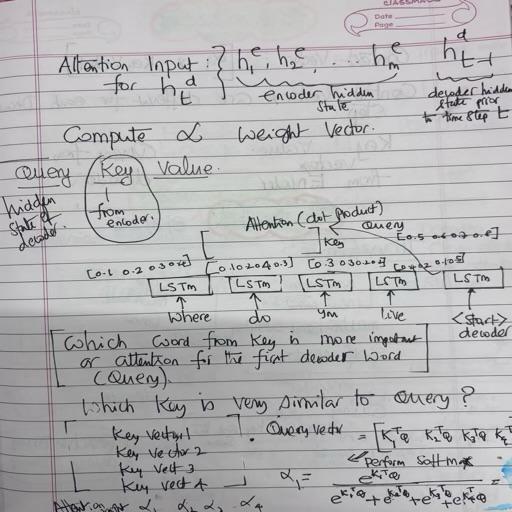 CLASSMATE
Date
Page
Attention Input : } h₁ᵉ, h₂ᵉ, .... hₘᵉ hᵈₜ₋₁
for hₜᵈ
encoder hidden state
decoder hidden state prior to time step t
Compute α weight vector.
Query Key Value.
hidden state of decoder
from encoder.
Attention (dot product)
Query
Key
LSTM LSTM LSTM LSTM LSTM
where do ym live <start>
decoder
[Which word from Key is more important
or attention for the first decoder word
(Query).]
Which Key is very similar to Query ?
Key vector 1
Key vector 2
Key vect 3
Key vect 4
. Query vector = [K₁ᵀQ K₂ᵀQ K₃ᵀQ K
perform softmax
α₁ = e^K₁ᵀQ / e^K₁ᵀQ + e^K₂ᵀQ + e^K₃ᵀQ + e^K₄ᵀQ =
Attention
α₁ α₂ α₃ α₄